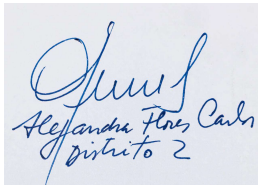 Alejandra Flores Carlos
Distrito 2